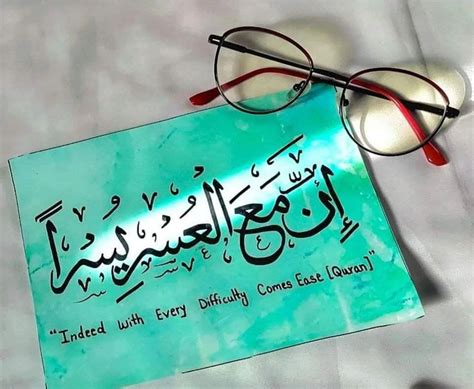 إِنَّ مَعَ العُسْرِ يُسْراً
"Indeed With Every Difficulty Comes Ease [Quran]"